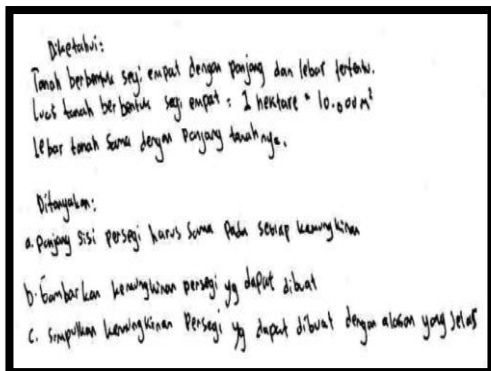 Diketahui:
Tanah berbentuk segi empat dengan panjang dan lebar tertentu.
Luas tanah berbentuk segi empat = 1 hektare = 10.000 m²
lebar tanah sama dengan panjang tanahnya.
Ditanyakan:
a. panjang sisi persegi harus sama pada setiap kemungkinan
b. Gambarkan kemungkinan persegi yg dapat dibuat
c. simpulkan kemungkinan persegi yg dapat dibuat dengan alasan yang jelas